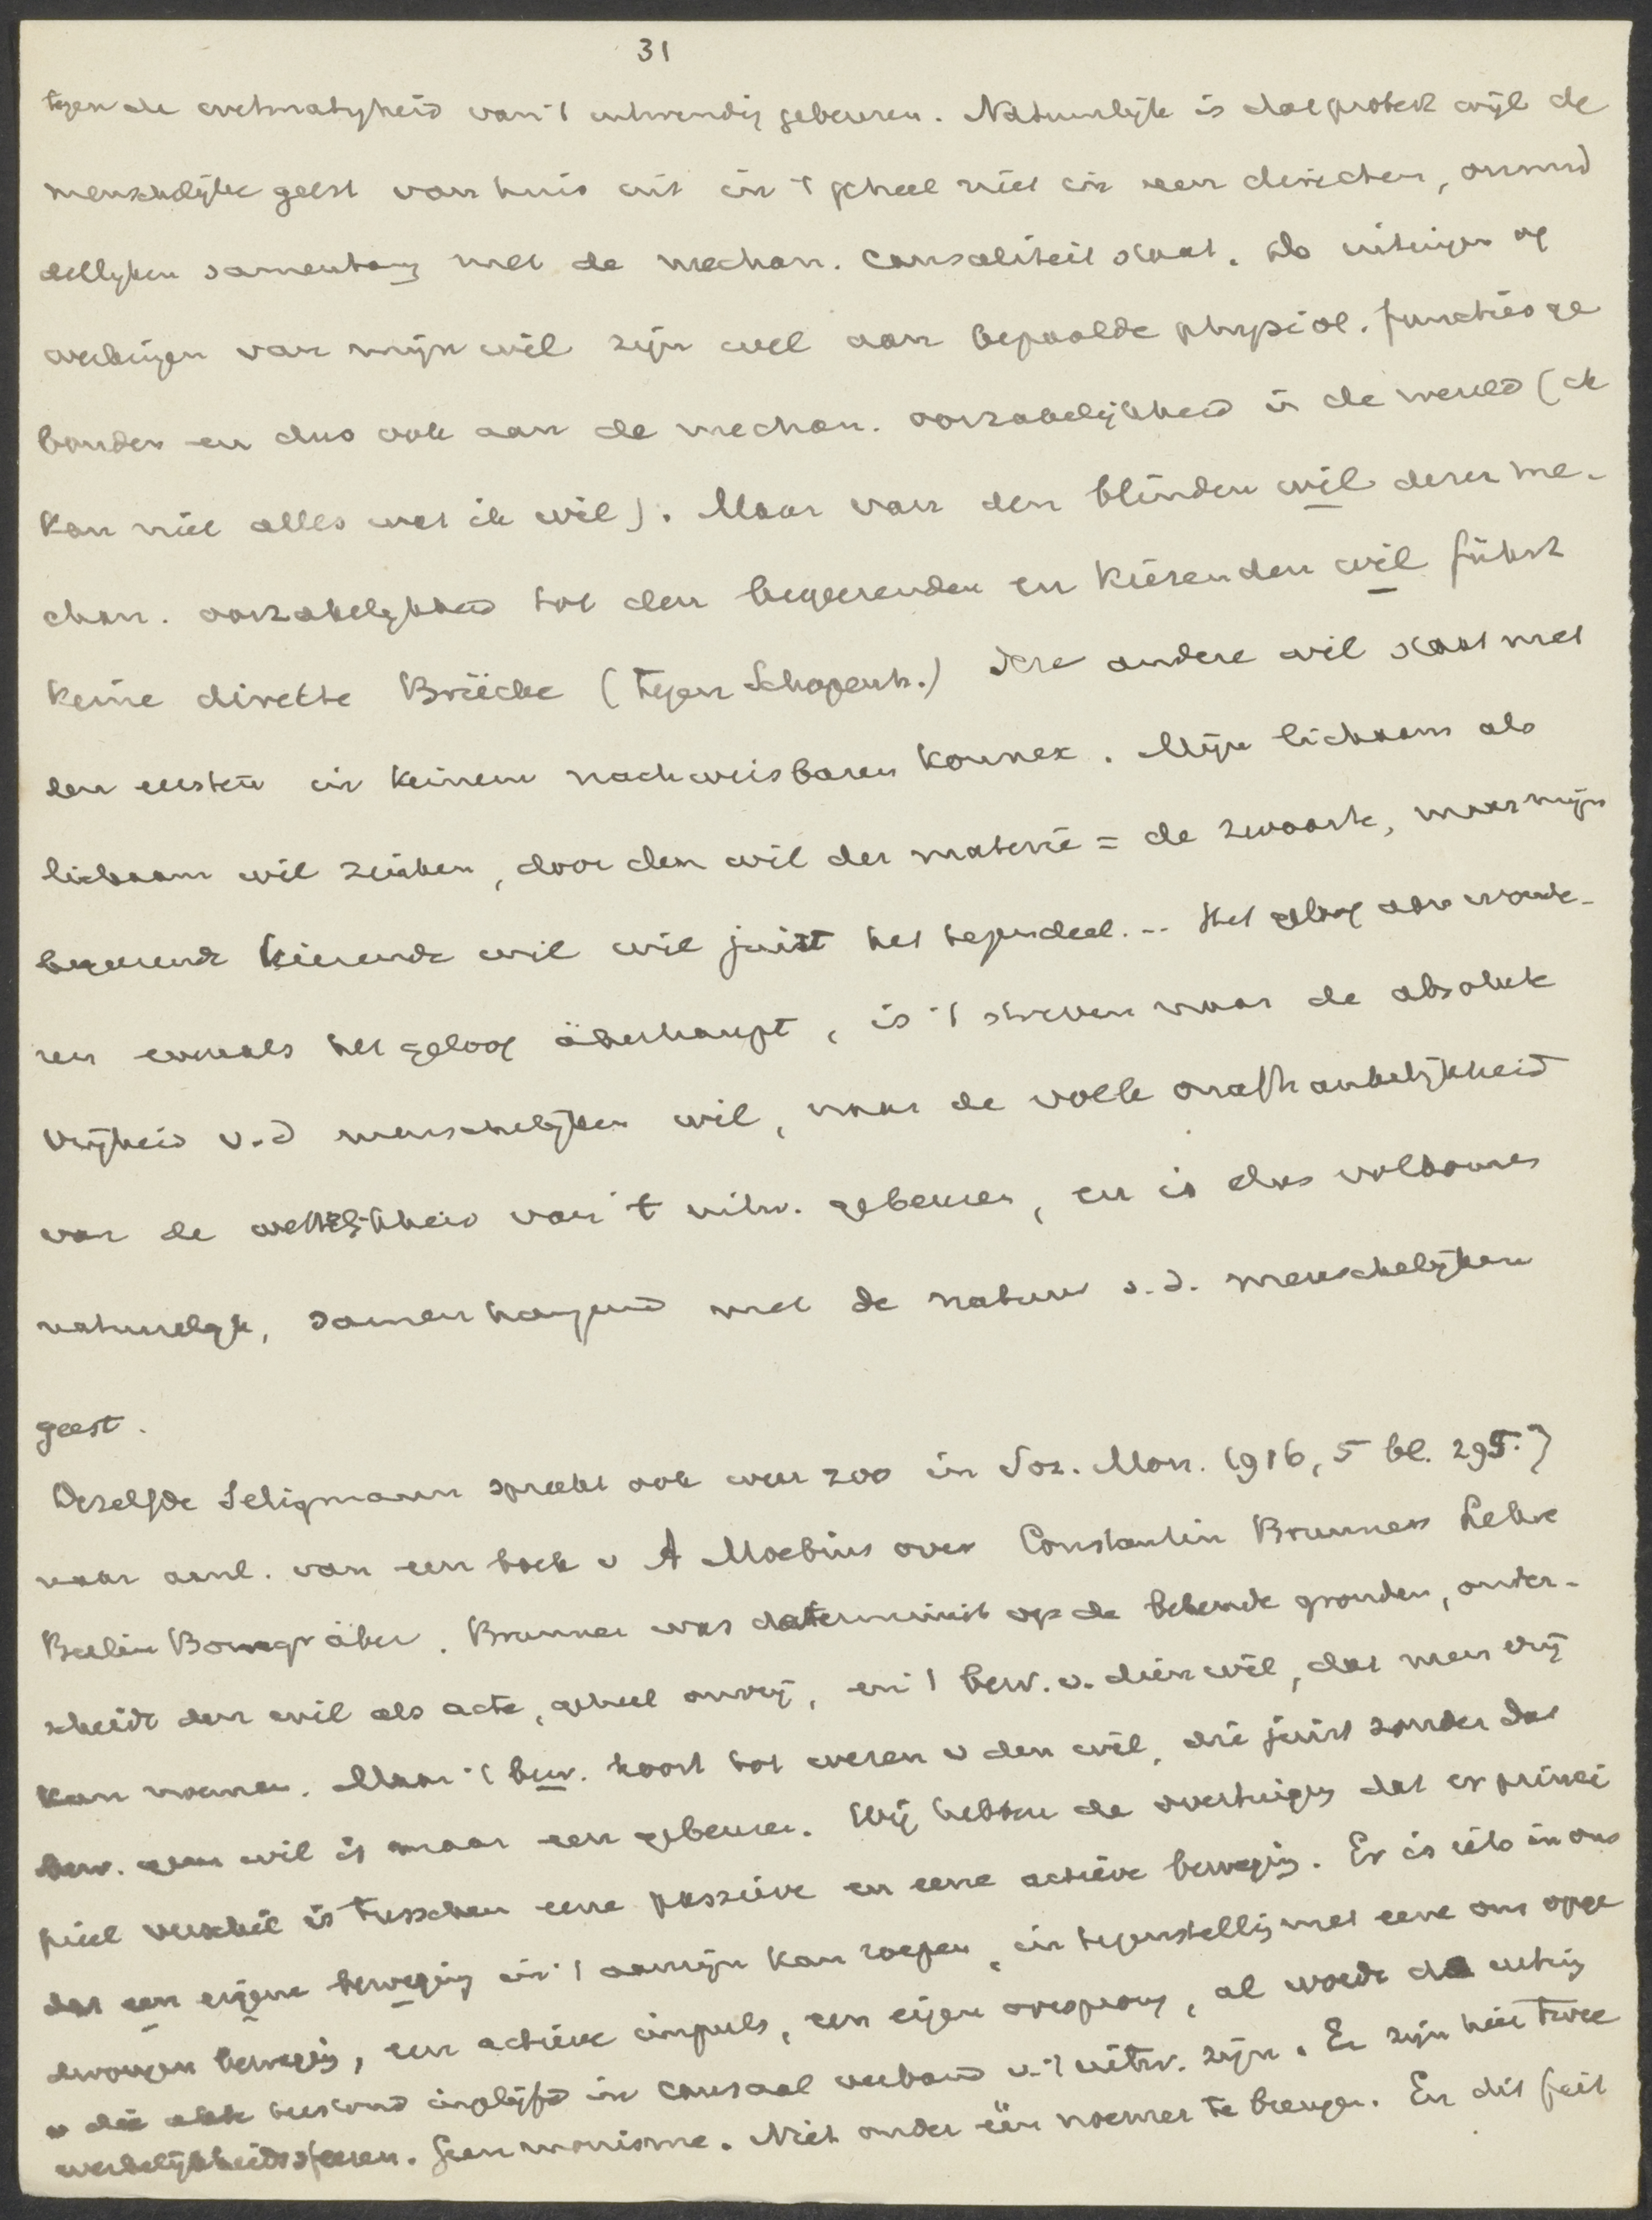 31
tegen de wetmatigheid van 't uitwendig gebeuren. Natuurlijk is dat protest wijl de
menschelijke geest van huis uit in 't geheel niet in een directen, onmid
dellyken samenhang met de mechan. causaliteit staat. Als uitingen og
werkingen van mijn wil zijn wel aan bepaalde physiol. functies ge
bonden en dus ook aan de mechan. oorzakelijkheid in de wereld (ik
kan niet alles wat ik wil). Maar van den blinden wil dezer me-
chan. oorzakelijkheid tot den begeerenden en kiezenden wil führt
keine direkte Brücke (tegen Schopenh.) deze andere wil staat met
den eersten in keinem nachweisbaren Konnex. Mijn lichaam als
lichaam wil zinken, door den wil der materie = de zwaarte, maar mijn
begeerende kiezende wil wil juist het tegendeel. -- Het geloof aan wonde-
ren evenals het geloof überhaupt, is 't streven naar de absolute
vrijheid v.d menschelijken wil, naar de volle onafhankelijkheid
van de wettelijkheid van 't uitw. gebeuren, en is dus volkomen
natuurlijk, samenhangend met de natuur v.d. menschelijken
geest.
Dezelfde Seligmann spreekt ook weer zoo in Soz. Mon. 1916, 5 bl. 295.}
naar aanl. van een boek v A Moebius over Constantin Brunners Lehre
Berlin Borngräber. Brunner was determinist op de bekende gronden, onder-
scheidt den wil als acte, geheel onvrij, en 't bew. v. dien wil, dat men vrij
kan noemen. Maar 't bew. hoort tot wezen v den wil, die juist zonder dat
bew. geen wil is maar een gebeuren. Wij hebben de overtuiging dat er princi
pieel verschil is tusschen eene passieve en eene actieve beweging. Er is iets in ons
dat een eigene beweging in 't aanzijn kan roepen, in tegenstelling met eene ons opge
drongen beweging, een actieve impuls, een eigen oorsprong, al wordt de uiting
v die akte terstond ingelijfd in causaal verband v. 't uitw. zijn. Er zijn hier twee
werkelijkheidssferen. Geen monisme. Niet onder één noemer te brengen. En dit feit